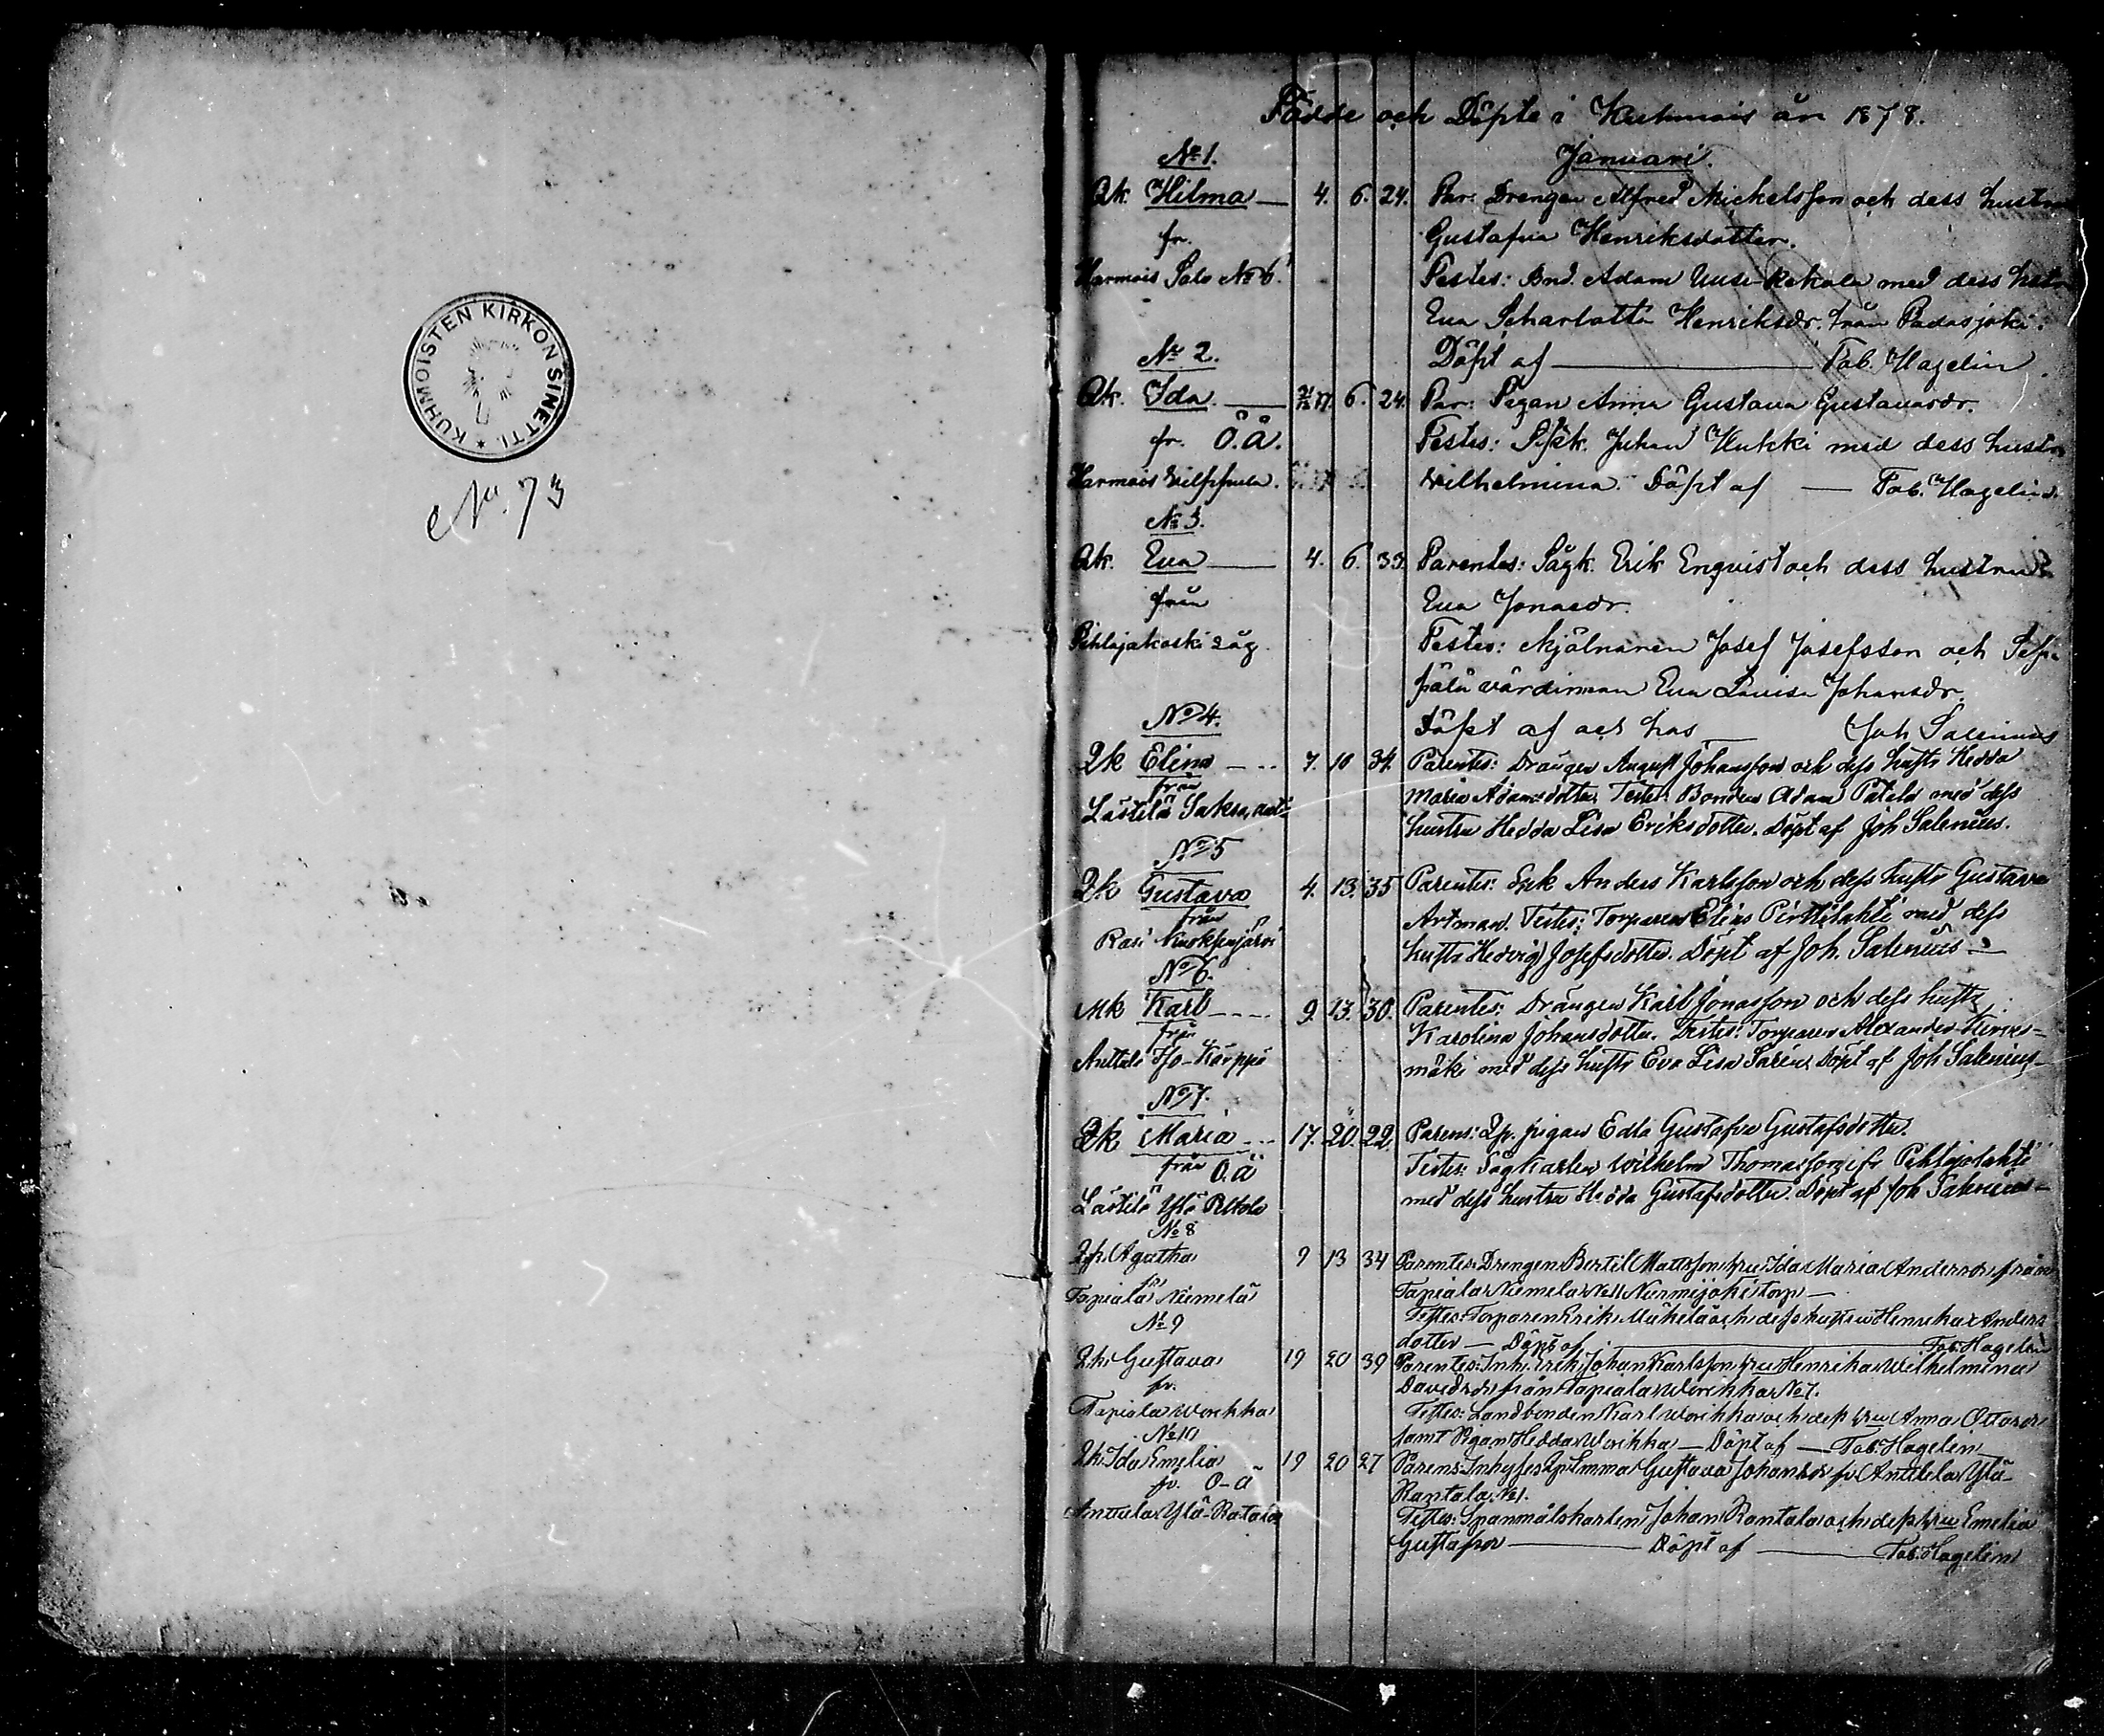 KUHMOISTEN KIRKON SINETTI
No. 73
Födde och Döpte i Kuhmois år 1878.
No 1.
Januari.
Qk. Hilma — 4. 6. 24. Par: Drengen Alfred Mickelsson och dess hustru
fr. Gustafva Henriksdotter.
Harmois Salo No 6. Testes: Bnd. Adam Uusi-Kokala med dess hstr
Eva Scharlotta Henriksdr. från Padasjoki.
No 2. Döpt af — Tob. Hagelin
Qk. Ida. — 77. 6. 24. Par: Pigan Anna Gustava Gustavasdr.
fr. O.Ä. Testes: Juhan Hukki med dess hustru
Harmois Wilhelmina. Döpt af — Tob. Hagelin.
No 3.
Qk. Eva — 4. 6. 33. Parentes: Sågk. Erik Enqvist och dess hustru
från Eva Jonasdr.
Pihlajakoski såg. Testes: Mjölnaren Josef Josefsson och
värdinnan Eva Lovisa Johansdr.
No 4. Döpt af och hos — Joh Salenius
Qk Elina — 7. 10 34. Parentes: Drängen August Johansson och dess hustr Hedda
från Maria Adamsdotter Testes Bonden Adam Patela med dess
Lästilä hustru Hedda Lisa Eriksdotter. Döpt af Joh Salenius.
No 5
Qk Gustava 4. 13. 35 Parentes: Anders Karlsson och dess hustr Gustava
från Artman. Testes: Torparen Elias Pirttilahti med dess
Rasi hustr Hedvig Josefsdotter. Döpt af Joh. Salenius —
No 6.
Mk Karl — 9. 13. 30. Parentes: Drängen Karl Jonasson och dess hustr
från Karolina Johansdotter. Testes: Torparen Alexander
Anttila Iso-Karppi mäki med dess hustr Eva Lisa Döpt af Joh Salenius —
No 7.
Qk Maria — 17. 20. 22. Parens: Qp. pigan Edla Gustafva Gustafsdotter.
från O.Ä Testes: Sågkarlen Wilhelm Thomasson fr Pihlajalahti
Lästilä Ylä med dess hustru Hedda Gustafsdotter. Döpt af Joh Salenius —
No 8
Agatha 9 13 34 Parentes: Drengen Bertil Mattsson hru Ida Maria Andersdr från
fr Tapiala Niemelä No 1 Nurmijoki torp —
Tapiala Niemelä Testes: Torparen Erik Mäkelä och dess hustru Henrika Anders
No 9 dotter — Döpt af — Tob. Hagelin
Qk Gustava 19 20 39 Parentes: Inh. Erik Johan Karlsson hru Henrika Wilhelmina
fr. Davidsdr från Tapiala Worikka No 7.
Tapiala Worikka Testes: Landbonden Karl Worikka och dess hru Anna Ottosdr
No 10 samt Pigan Hedda Worikka — Döpt af — Tob. Hagelin
Qk Ida Emelia 19 20 27 Parens: Inhyses Qp Emma Gustava Johansdr fr Anttila Ylä-
fr. O-ä Rantala No 1.
Anttila Ylä-Rantala Testes: Spanmålskarlen Johan Rantala och dess hru Emelia
Gustafsdr — Döpt af — Tob. Hagelin